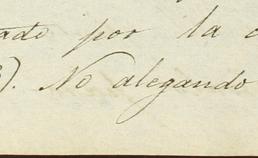 ade por la
). No alegando